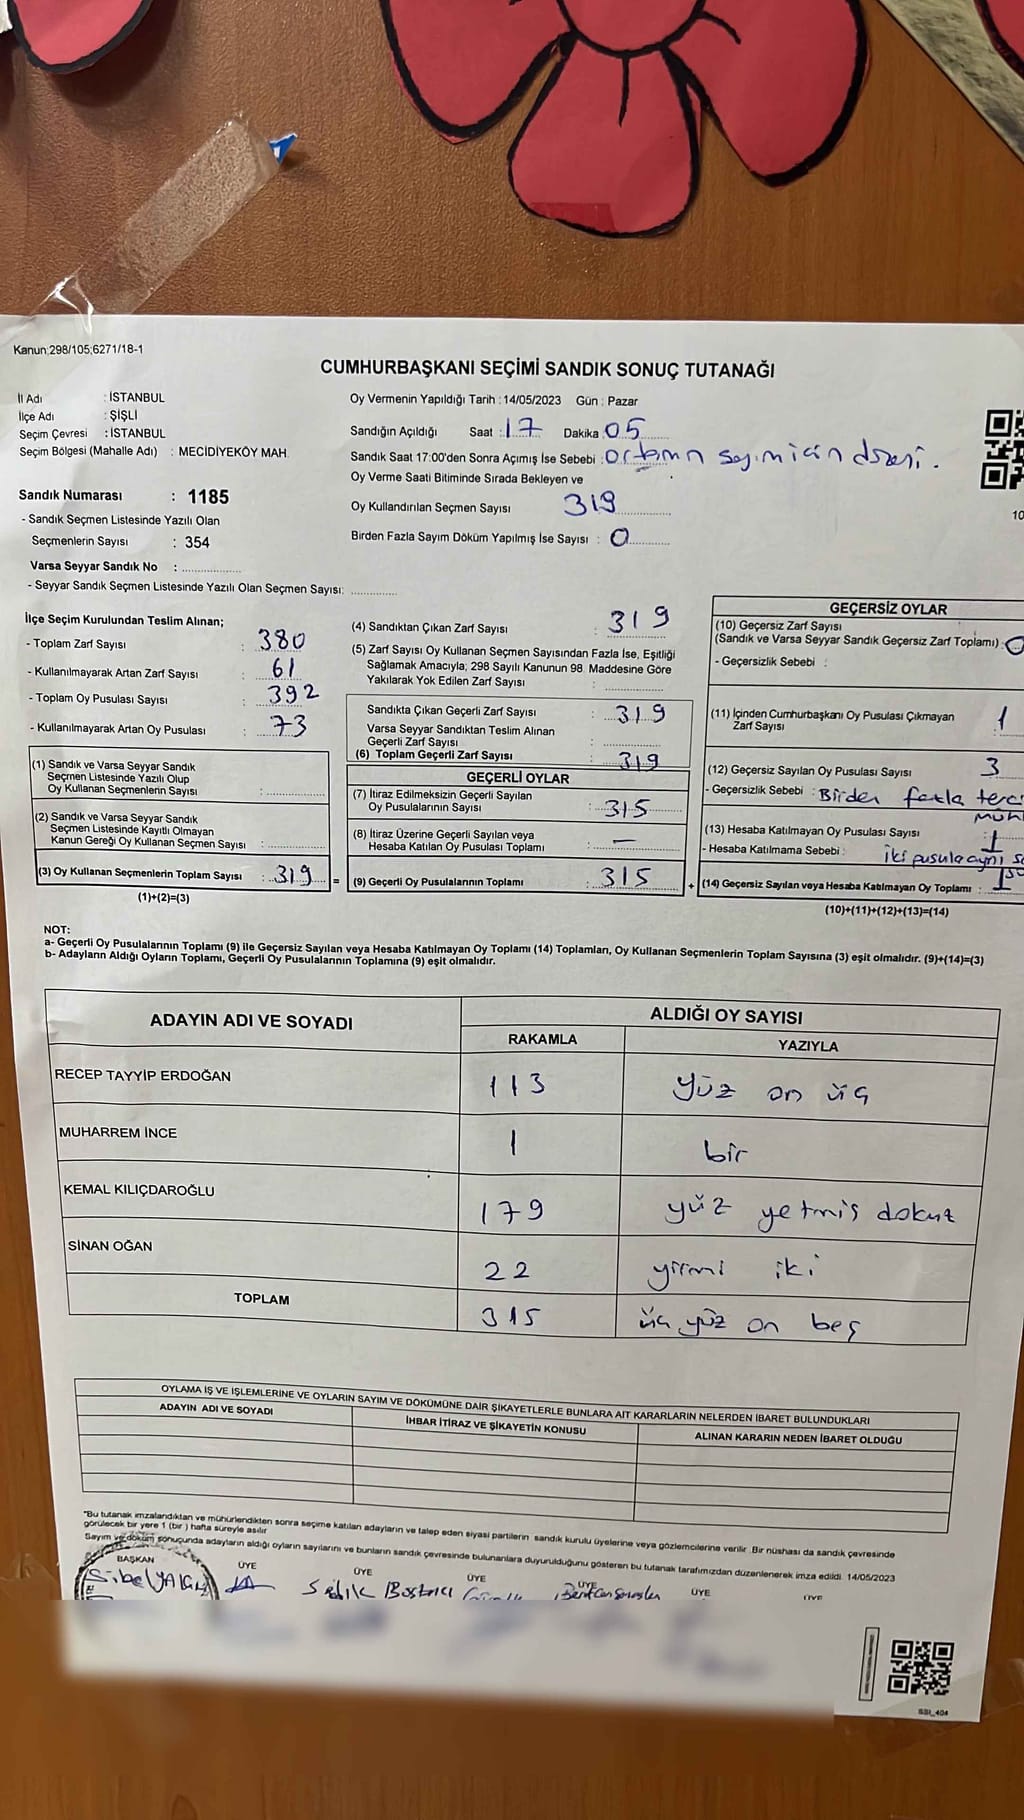 Kanun;298/105;6271/18-1
CUMHURBAŞKANI SEÇİMİ SANDIK SONUÇ TUTANAĞI
İl Adı : İSTANBUL
İlçe Adı : ŞİŞLİ
Seçim Çevresi : İSTANBUL
Seçim Bölgesi (Mahalle Adı) : MECİDİYEKÖY MAH.
Sandık Numarası : 1185
- Sandık Seçmen Listesinde Yazılı Olan
Seçmenlerin Sayısı : 354
Varsa Seyyar Sandık No :
- Seyyar Sandık Seçmen Listesinde Yazılı Olan Seçmen Sayısı:
Oy Vermenin Yapıldığı Tarih : 14/05/2023 Gün : Pazar
Sandığın Açıldığı Saat : 17 Dakika : 05
Sandık Saat 17:00'den Sonra Açımış İse Sebebi : Ortamın sayım için düzeni.
Oy Verme Saati Bitiminde Sırada Bekleyen ve
Oy Kullandırılan Seçmen Sayısı 319
Birden Fazla Sayım Döküm Yapılmış İse Sayısı : 0
10
İlçe Seçim Kurulundan Teslim Alınan;
- Toplam Zarf Sayısı : 380
- Kullanılmayarak Artan Zarf Sayısı : 61
- Toplam Oy Pusulası Sayısı : 392
- Kullanılmayarak Artan Oy Pusulası : 73
(1) Sandık ve Varsa Seyyar Sandık
Seçmen Listesinde Yazılı Olup
Oy Kullanan Seçmenlerin Sayısı :
(2) Sandık ve Varsa Seyyar Sandık
Seçmen Listesinde Kayıtlı Olmayan
Kanun Gereği Oy Kullanan Seçmen Sayısı :
(3) Oy Kullanan Seçmenlerin Toplam Sayısı : 319 =
(1)+(2)=(3)
(4) Sandıktan Çıkan Zarf Sayısı : 319
(5) Zarf Sayısı Oy Kullanan Seçmen Sayısından Fazla İse, Eşitliği
Sağlamak Amacıyla; 298 Sayılı Kanunun 98. Maddesine Göre
Yakılarak Yok Edilen Zarf Sayısı :
Sandıkta Çıkan Geçerli Zarf Sayısı : 319
Varsa Seyyar Sandıktan Teslim Alınan
Geçerli Zarf Sayısı :
(6) Toplam Geçerli Zarf Sayısı : 319
GEÇERLİ OYLAR
(7) İtiraz Edilmeksizin Geçerli Sayılan
Oy Pusulalarının Sayısı : 315
(8) İtiraz Üzerine Geçerli Sayılan veya
Hesaba Katılan Oy Pusulası Toplamı : —
(9) Geçerli Oy Pusulalarının Toplamı : 315 +
GEÇERSİZ OYLAR
(10) Geçersiz Zarf Sayısı
(Sandık ve Varsa Seyyar Sandık Geçersiz Zarf Toplamı) : 0
- Geçersizlik Sebebi :
(11) İçinden Cumhurbaşkanı Oy Pusulası Çıkmayan
Zarf Sayısı : 1
(12) Geçersiz Sayılan Oy Pusulası Sayısı 3
- Geçersizlik Sebebi : Birden fazla terc
müh
(13) Hesaba Katılmayan Oy Pusulası Sayısı : 1
- Hesaba Katılmama Sebebi : iki pusula aynı
(14) Geçersiz Sayılan veya Hesaba Katılmayan Oy Toplamı :
(10)+(11)+(12)+(13)=(14)
NOT:
a- Geçerli Oy Pusulalarının Toplamı (9) ile Geçersiz Sayılan veya Hesaba Katılmayan Oy Toplamı (14) Toplamları, Oy Kullanan Seçmenlerin Toplam Sayısına (3) eşit olmalıdır. (9)+(14)=(3)
b- Adayların Aldığı Oyların Toplamı, Geçerli Oy Pusulalarının Toplamına (9) eşit olmalıdır.
ADAYIN ADI VE SOYADI ALDIĞI OY SAYISI
RAKAMLA YAZIYLA
RECEP TAYYİP ERDOĞAN 113 yüz on üç
MUHARREM İNCE 1 bir
KEMAL KILIÇDAROĞLU 179 yüz yetmiş dokuz
SİNAN OĞAN 22 yirmi iki
TOPLAM 315 üç yüz on beş
OYLAMA İŞ VE İŞLEMLERİNE VE OYLARIN SAYIM VE DÖKÜMÜNE DAİR ŞİKAYETLERLE BUNLARA AİT KARARLARIN NELERDEN İBARET BULUNDUKLARI
ADAYIN ADI VE SOYADI İHBAR İTİRAZ VE ŞİKAYETİN KONUSU ALINAN KARARIN NEDEN İBARET OLDUĞU
*Bu tutanak imzalandıktan ve mühürlendikten sonra seçime katılan adayların ve talep eden siyasi partilerin sandık kurulu üyelerine veya gözlemcilerine verilir. Bir nüshası da sandık çevresinde
görülecek bir yere 1 (bir) hafta süreyle asılır
Sayım ve döküm sonuçunda adayların aldığı oyların sayılarını ve bunların sandık çevresinde bulunanlara duyurulduğunu gösteren bu tutanak tarafımızdan düzenlenerek imza edildi. 14/05/2023
BAŞKAN ÜYE ÜYE ÜYE ÜYE ÜYE ÜYE
Sibel YALÇIN
SSI_404